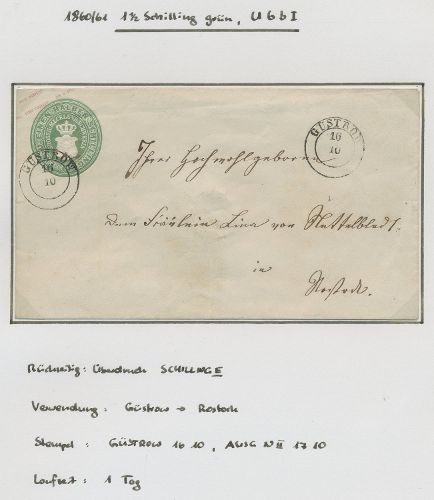 1860/61 1½ Schilling grün, U 6 b I
GÜSTROW
16
10
GÜSTROW
16
10
Ihrer Hochwohlgeboren
Dem Fräulein Lina von Nettelbladt.
in
Rostock.
Rückseitig: Überdruck SCHILLINGE
Verwendung: Güstrow → Rostock
Stempel: GÜSTROW 16 10, AUSG N II 17 10
Laufzeit: 1 Tag